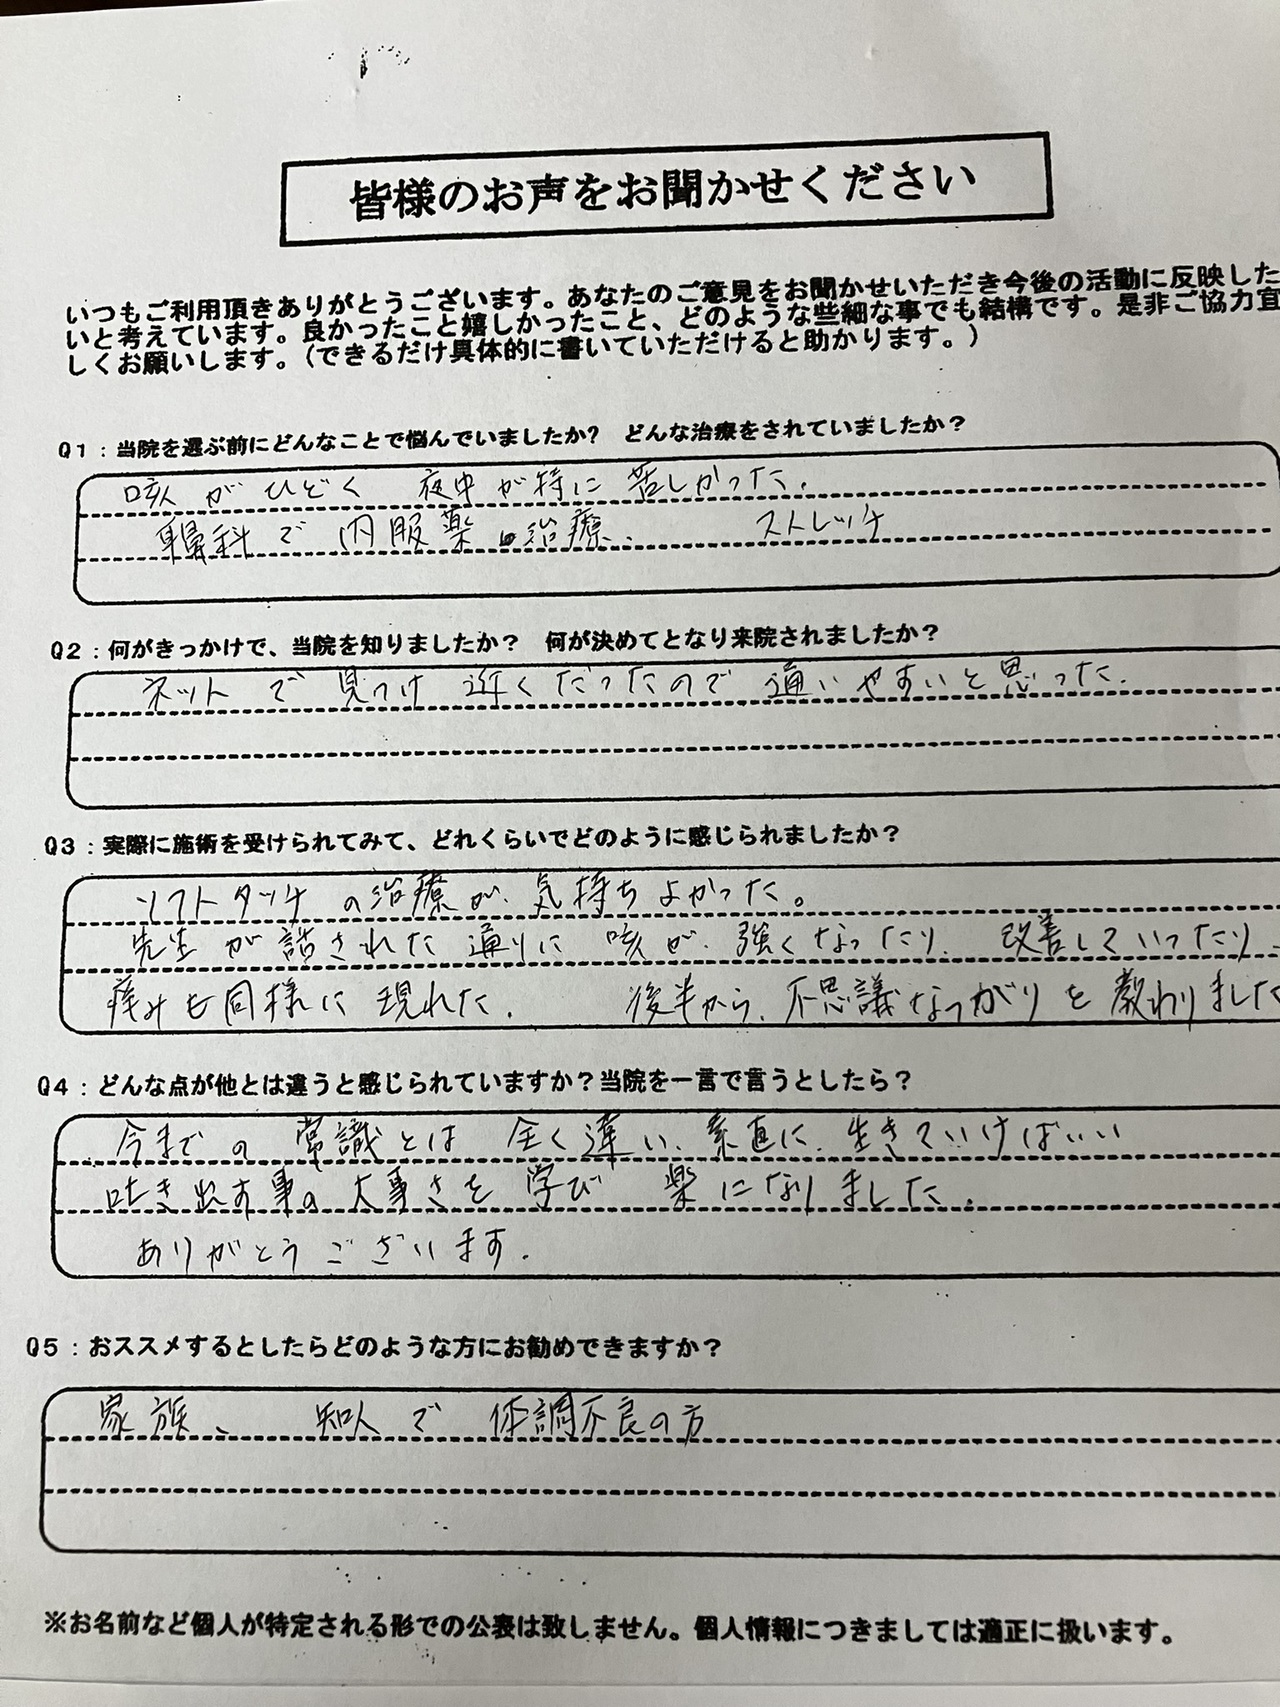 皆様のお声をお聞かせください
いつもご利用頂きありがとうございます。あなたのご意見をお聞かせいただき今後の活動に反映した
いと考えています。良かったこと嬉しかったこと、どのような些細な事でも結構です。是非ご協力宜
しくお願いします。(できるだけ具体的に書いていただけると助かります。)
Q1:当院を選ぶ前にどんなことで悩んでいましたか? どんな治療をされていましたか?
咳が ひどく 夜中が特に 苦しかった.
耳鼻科で 内服薬 治療. ストレッチ
Q2:何がきっかけで、当院を知りましたか? 何が決めてとなり来院されましたか?
ネットで 見つけ 近くだったので 通いやすいと思った.
Q3:実際に施術を受けられてみて、どれくらいでどのように感じられましたか?
ソフトタッチの治療が、気持ちよかった。
先生が話された通りに 咳が、強くなったり、改善していったり
痛みも同様に現れた. 後半から、不思議なつながりを教わりました
Q4:どんな点が他とは違うと感じられていますか?当院を一言で言うとしたら?
今までの 常識とは 全く違い、素直に、生きていけばいい
吐き出す事の大事さを学び 楽になりました.
ありがとうございます.
Q5:おススメするとしたらどのような方にお勧めできますか?
家族、 知人で 体調不良の方
※お名前など個人が特定される形での公表は致しません。個人情報につきましては適正に扱います。